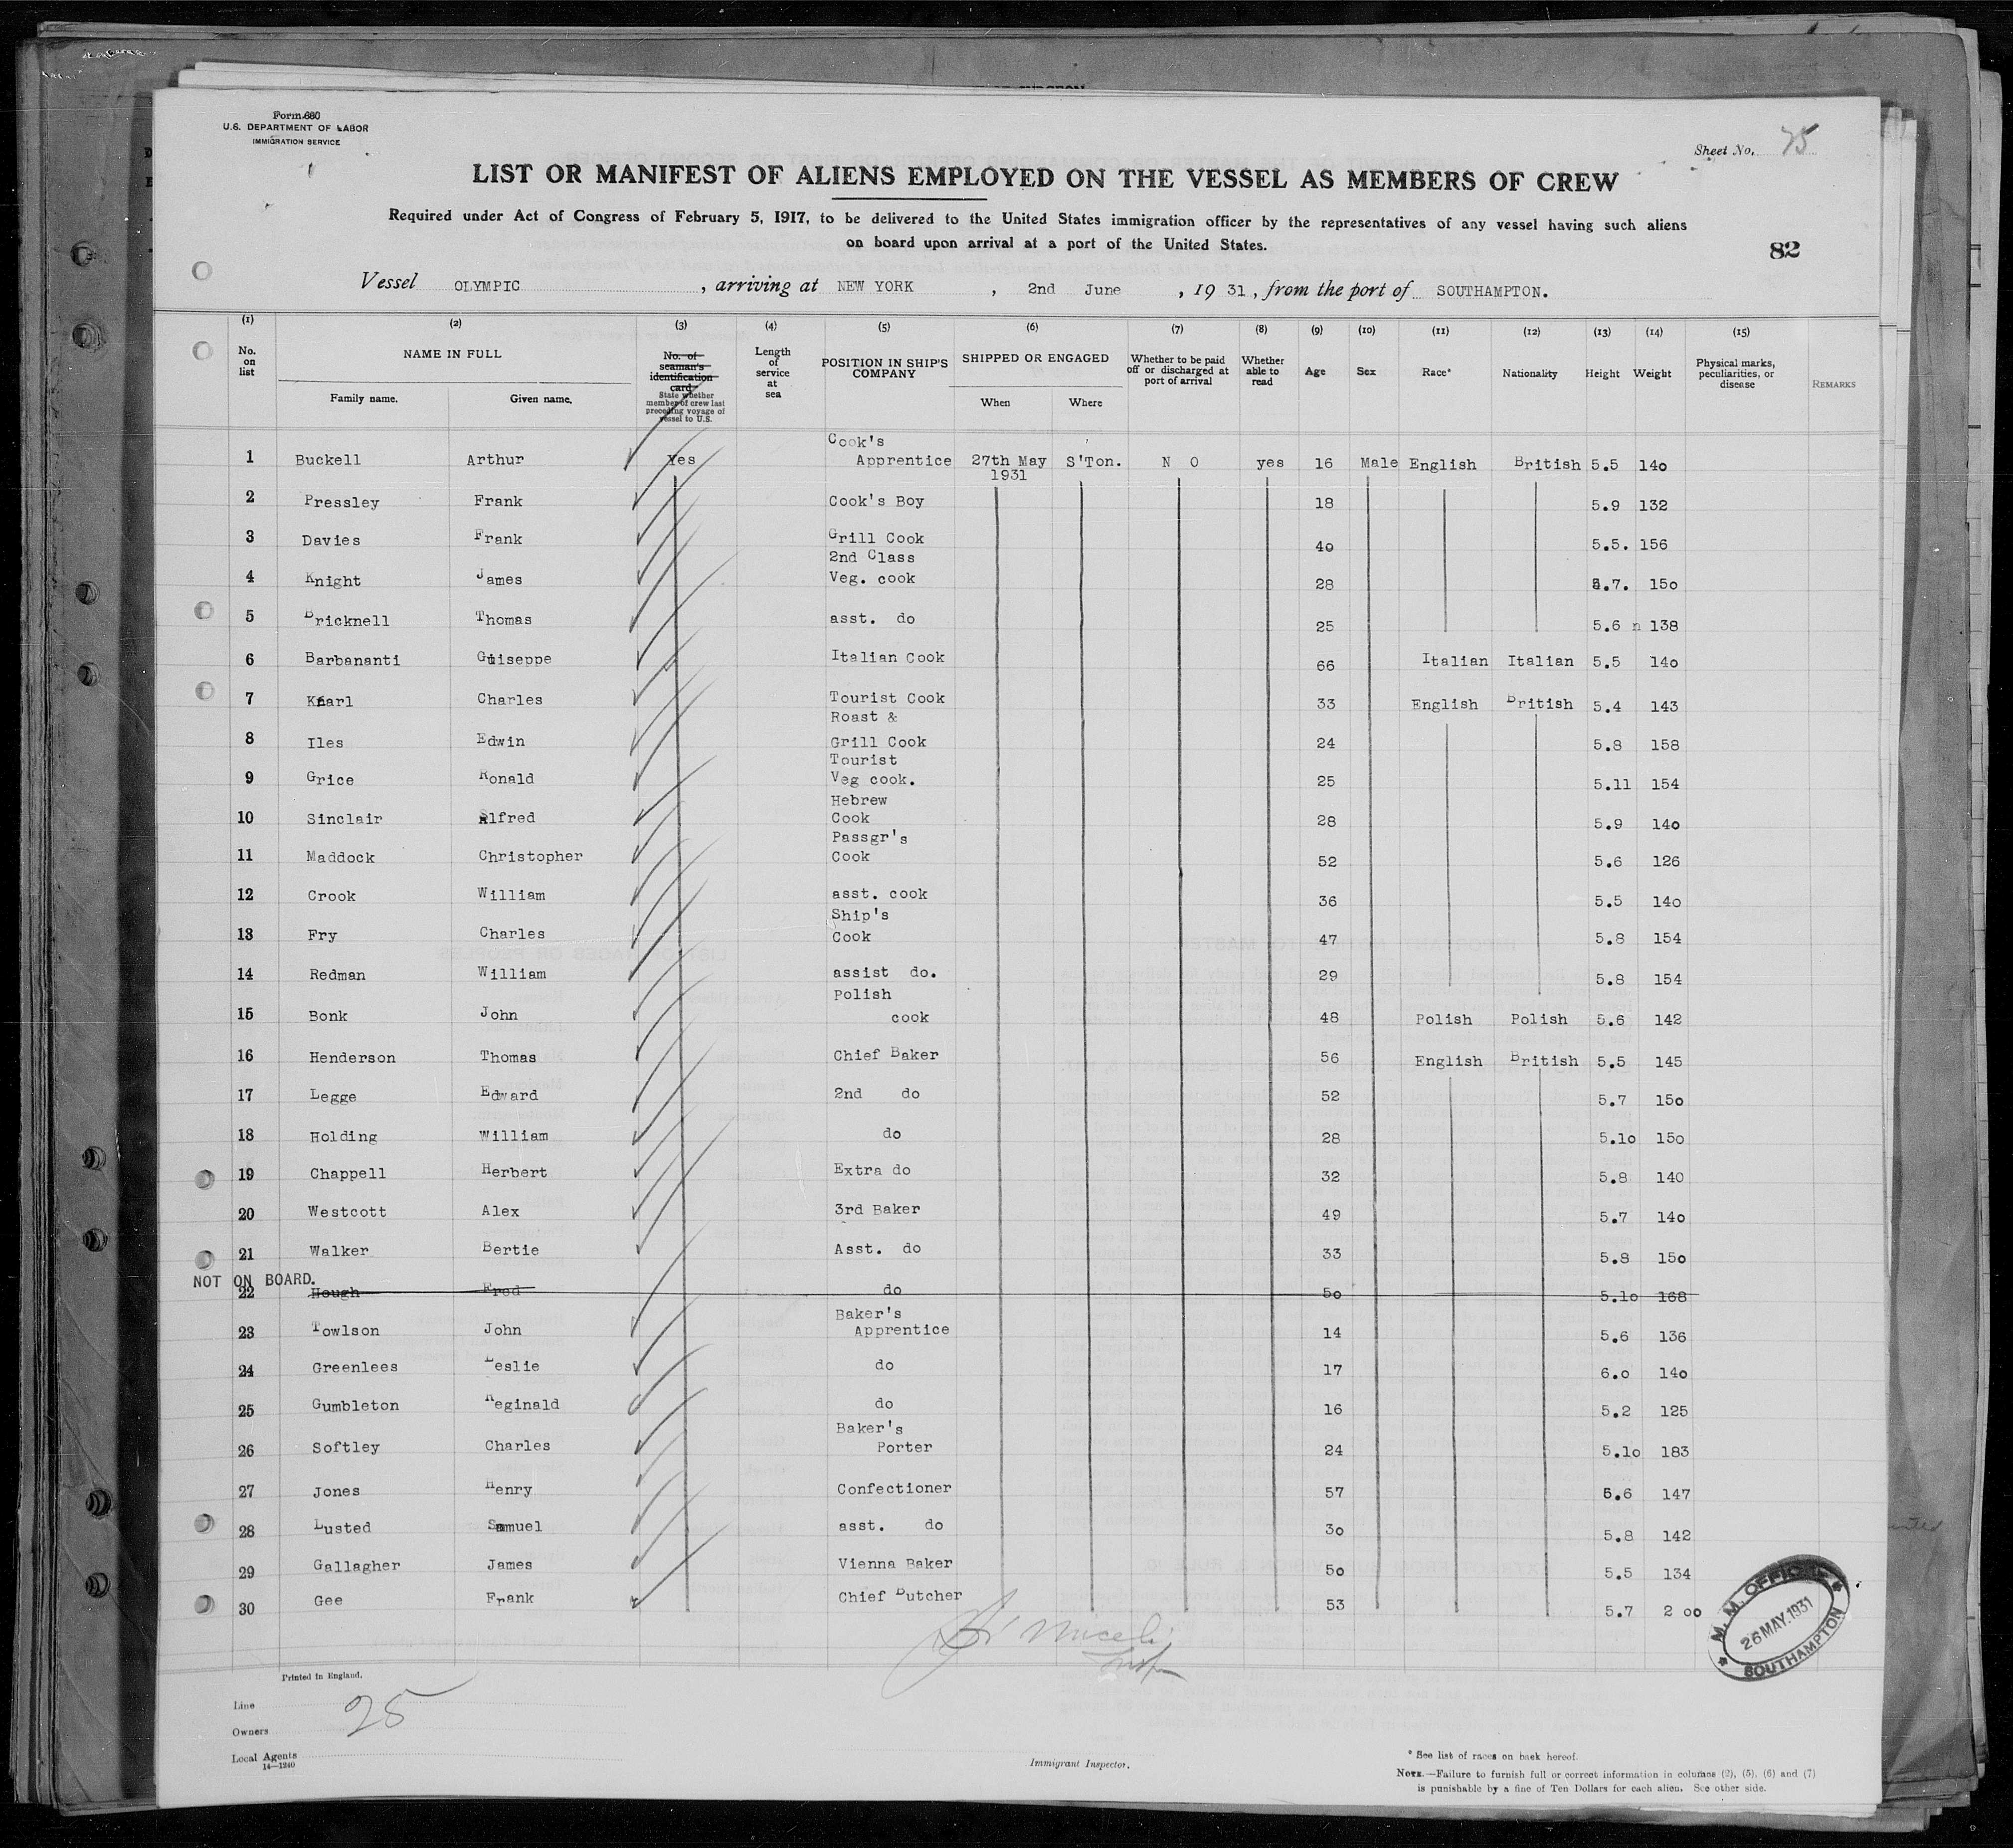 Form 680
U.S. DEPARTMENT OF LABOR
IMMIGRATION SERVICE
Sheet No. 75
LIST OR MANIFEST OF ALIENS EMPLOYED ON THE VESSEL AS MEMBERS OF CREW
Required under Act of Congress of February 5, 1917, to be delivered to the United States immigration officer by the representatives of any vessel having such aliens
on board upon arrival at a port of the United States.
82
Vessel OLYMPIC, arriving at NEW YORK, 2nd June, 1931, from the port of SOUTHAMPTON.
(1) (2) (3) (4) (5) (6) (7) (8) (9) (10) (11) (12) (13) (14) (15)
No. on list
NAME IN FULL
Family name. Given name.
No. of seaman's identification card
State whether member of crew last preceding voyage of vessel to U.S.
Length of service at sea
POSITION IN SHIP'S COMPANY
SHIPPED OR ENGAGED
When Where
Whether to be paid off or discharged at port of arrival
Whether able to read
Age
Sex
Race*
Nationality
Height
Weight
Physical marks, peculiarities, or disease
REMARKS
1 Buckell Arthur Yes Cook's Apprentice 27th May 1931 S'Ton. N O yes 16 Male English British 5.5 140
2 Pressley Frank Cook's Boy 18 5.9 132
3 Davies Frank Grill Cook 40 5.5. 156
4 Knight James 2nd Class Veg. cook 28 .7. 150
5 Bricknell Thomas asst. do 25 5.6 n 138
6 Barbananti Guiseppe Italian Cook 66 Italian Italian 5.5 140
7 Charles Tourist Cook 33 English British 5.4 143
8 Iles Edwin Roast & Grill Cook 24 5.8 158
9 Grice Ronald Tourist Veg cook. 25 5.11 154
10 Sinclair Alfred Hebrew Cook 28 5.9 140
11 Maddock Christopher Passgr's Cook 52 5.6 126
12 Crook William asst. cook 36 5.5 140
13 Fry Charles Ship's Cook 47 5.8 154
14 Redman William assist do. 29 5.8 154
15 Bonk John Polish cook 48 Polish Polish 5.6 142
16 Henderson Thomas Chief Baker 56 English British 5.5 145
17 Legge Edward 2nd do 52 5.7 150
18 Holding William do 28 5.10 150
19 Chappell Herbert Extra do 32 5.8 140
20 Westcott Alex 3rd Baker 49 5.7 140
21 Walker Bertie Asst. do 33 5.8 150
NOT ON BOARD.
22 Hough Fred do 50 5.10 168
23 Towlson John Baker's Apprentice 14 5.6 136
24 Greenlees Leslie do 17 6.0 140
25 Gumbleton Reginald do 16 5.2 125
26 Softley Charles Baker's Porter 24 5.10 183
27 Jones Henry Confectioner 57 5.6 147
28 Lusted Samuel asst. do 30 5.8 142
29 Gallagher James Vienna Baker 50 5.5 134
30 Gee Frank Chief Butcher 53 5.7 2 00
M. M. OFFICE
26 MAY. 1931
SOUTHAMPTON
Printed in England.
Line
25
Owners
Local Agents
14—1240
Immigrant Inspector.
* See list of races on back hereof.
NOTE.—Failure to furnish full or correct information in columns (2), (5), (6) and (7)
is punishable by a fine of Ten Dollars for each alien. See other side.